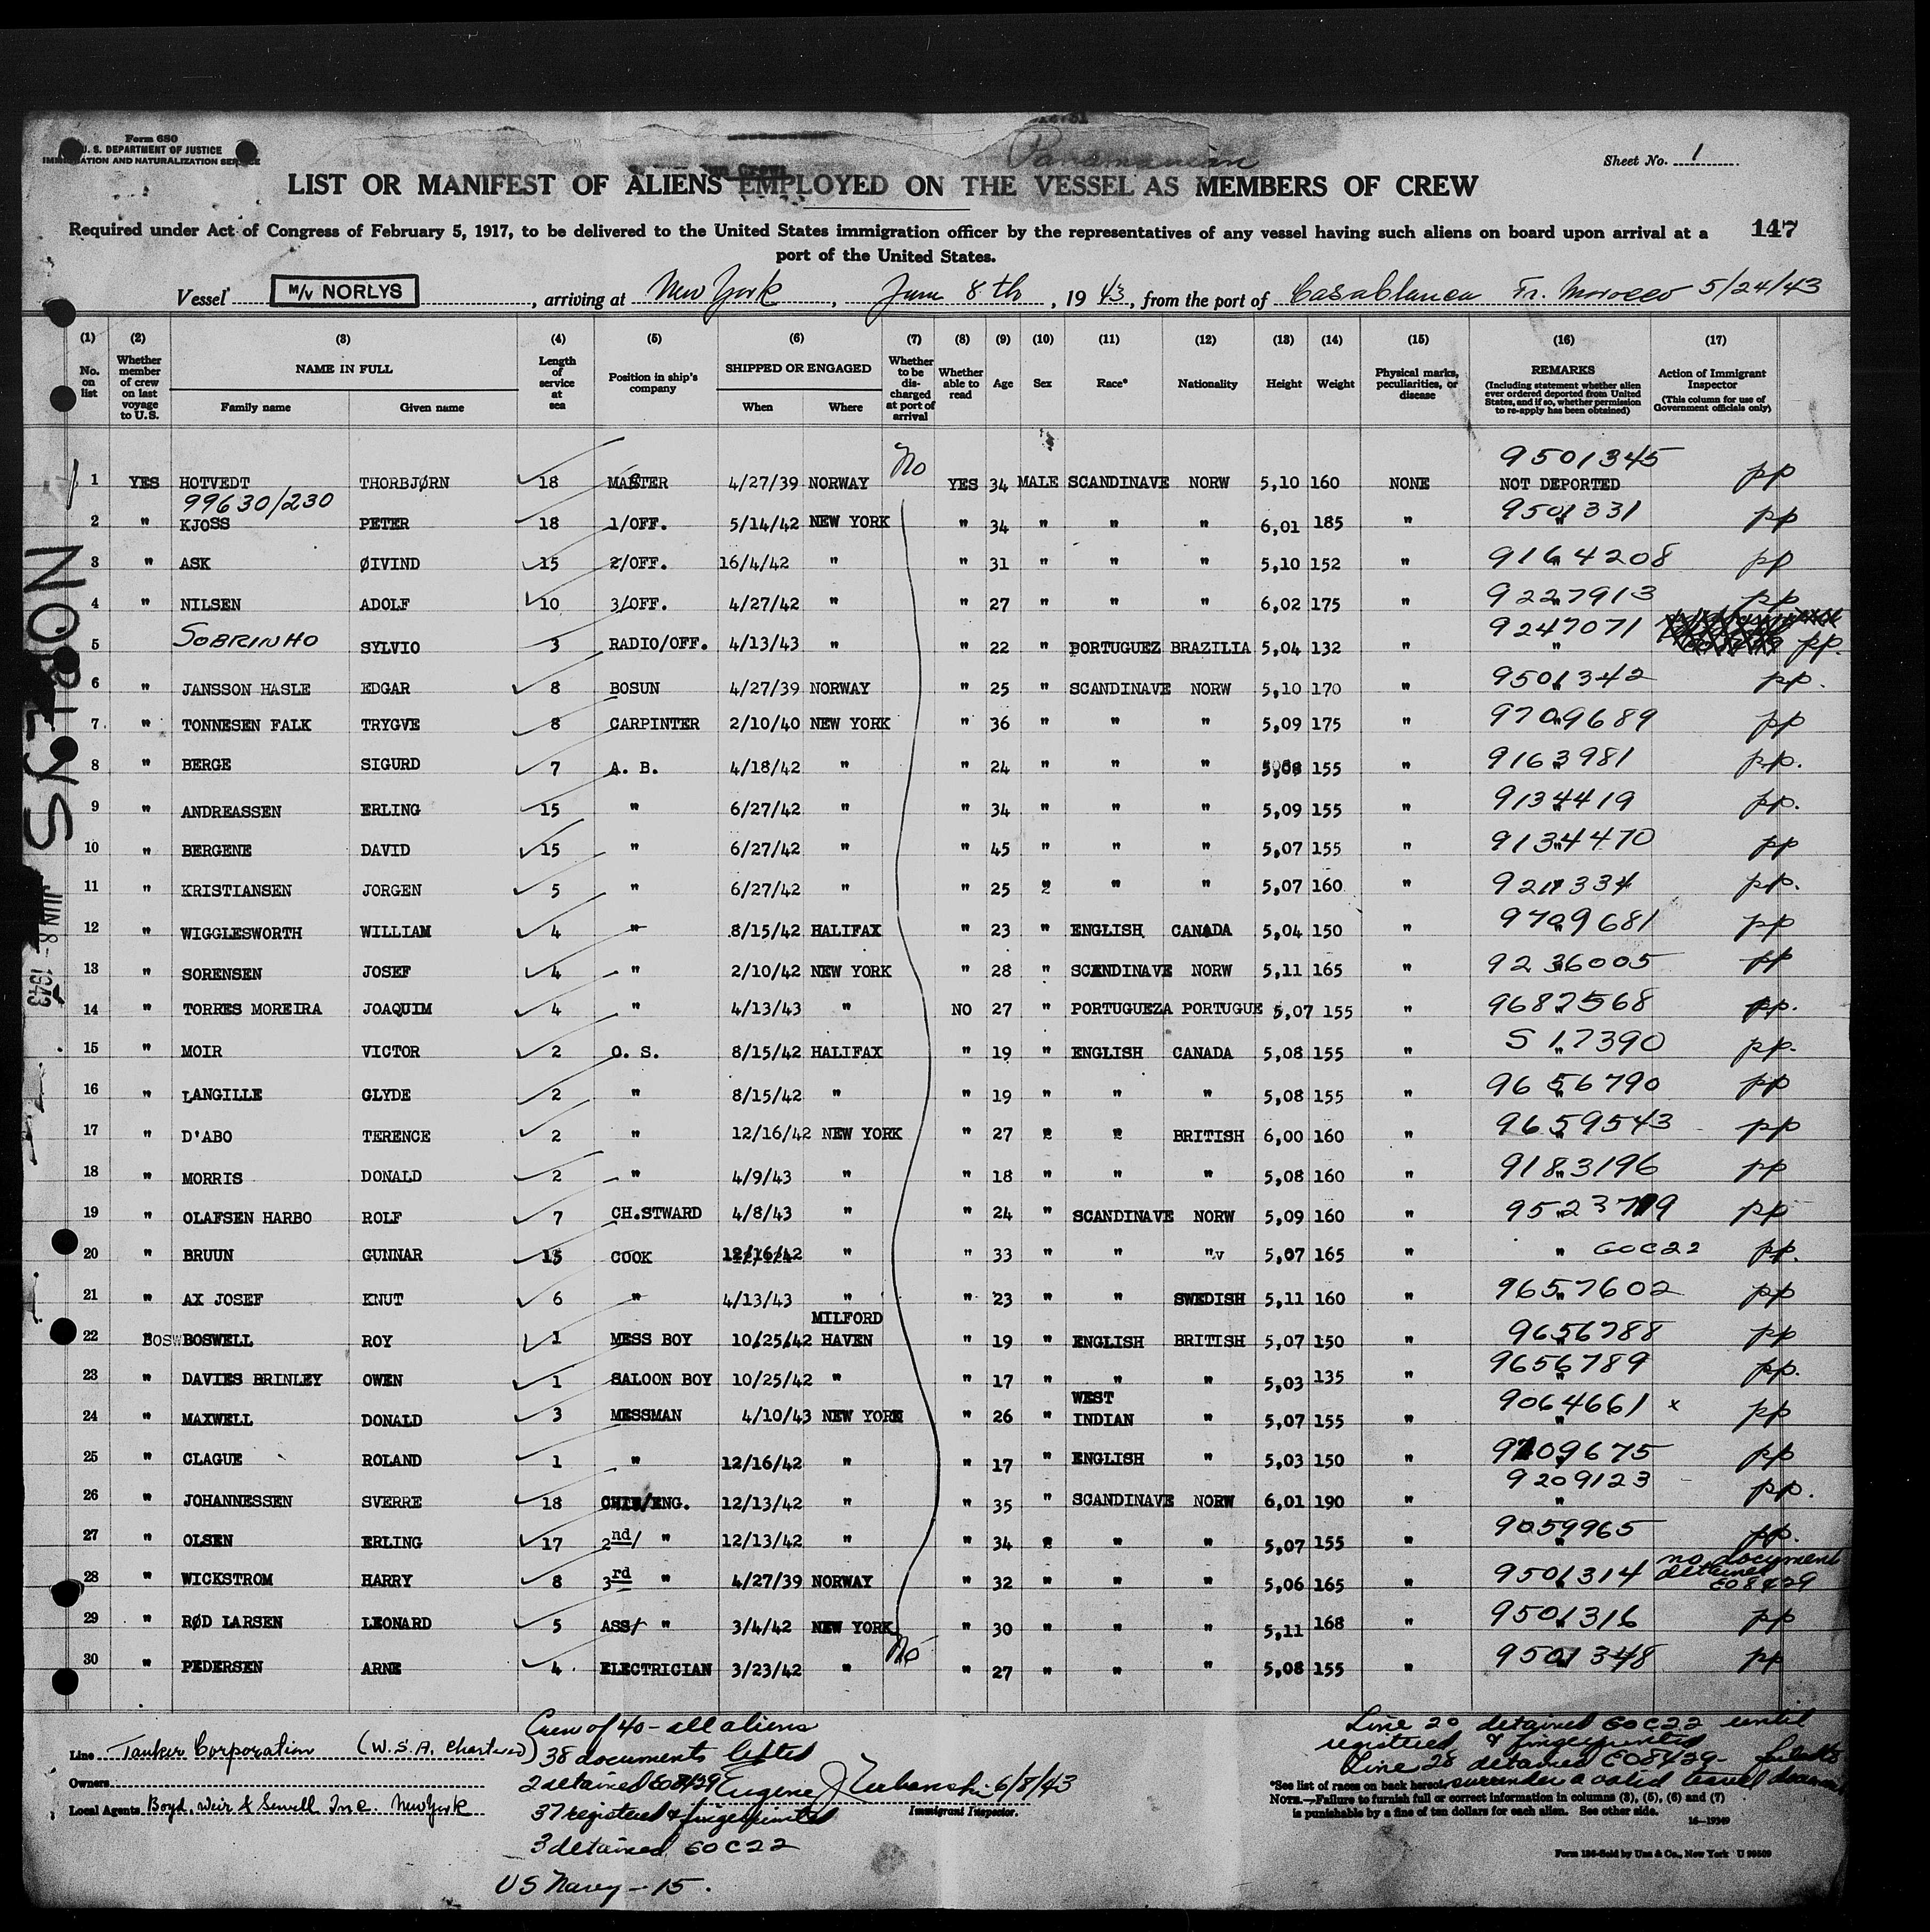 Form 680
U. S. DEPARTMENT OF JUSTICE
IMMIGRATION AND NATURALIZATION SERVICE
Panamanian
Sheet No. 1
LIST OR MANIFEST OF ALIENS EMPLOYED ON THE VESSEL AS MEMBERS OF CREW
147
Required under Act of Congress of February 5, 1917, to be delivered to the United States immigration officer by the representatives of any vessel having such aliens on board upon arrival at a
port of the United States.
Vessel M/V NORLYS, arriving at New York, June 8th, 1943, from the port of Casablanca Fr. Morocco 5/24/43
(1) (2) (3) (4) (5) (6) (7) (8) (9) (10) (11) (12) (13) (14) (15) (16) (17)
No. on list
Whether member of crew on last voyage to U.S.
NAME IN FULL
Family name
Given name
Length of service at sea
Position in ship's company
SHIPPED OR ENGAGED
When
Where
Whether to be discharged at port of arrival
Whether able to read
Age
Sex
Race*
Nationality
Height
Weight
Physical marks, peculiarities, or disease
REMARKS
(Including statement whether alien ever ordered deported from United States, and if so, whether permission to re-apply has been obtained)
Action of Immigrant Inspector
(This column for use of Government officials only)
9501345
1 YES HOTVEDT THORBJØRN 18 MASTER 4/27/39 NORWAY No YES 34 MALE SCANDINAVE NORW 5,10 160 NONE NOT DEPORTED pp
99630/230
2 " KJOSS PETER 18 1/OFF. 5/14/42 NEW YORK " 34 " " " 6,01 185 " 9501331 pp
3 " ASK ØIVIND 15 2/OFF. 16/4/42 " " 31 " " " 5,10 152 " 9164208 pp
4 " NILSEN ADOLF 10 3/OFF. 4/27/42 " " 27 " " " 6,02 175 " 9227913 pp
5 " SOBRINHO SYLVIO 3 RADIO/OFF. 4/13/43 " " 22 " PORTUGUEZ BRAZILIA 5,04 132 " 9247071 pp.
6 " JANSSON HASLE EDGAR 8 BOSUN 4/27/39 NORWAY " 25 " SCANDINAVE NORW 5,10 170 " 9501342 pp.
7 " TONNESEN FALK TRYGVE 8 CARPINTER 2/10/40 NEW YORK " 36 " " " 5,09 175 " 9709689 pp
8 " BERGE SIGURD 7 A. B. 4/18/42 " " 24 " " " 155 " 9163981 pp.
9 " ANDREASSEN ERLING 15 " 6/27/42 " " 34 " " " 5,09 155 " 9134419 pp.
10 " BERGENE DAVID 15 " 6/27/42 " " 45 " " " 5,07 155 " 9134470 pp
11 " KRISTIANSEN JORGEN 5 " 6/27/42 " " 25 " " " 5,07 160 " pp.
12 " WIGGLESWORTH WILLIAM 4 " 8/15/42 HALIFAX " 23 " ENGLISH CANADA 5,04 150 " 9709681 pp
13 " SORENSEN JOSEF 4 " 2/10/42 NEW YORK " 28 " SCENDINAVE NORW 5,11 165 " 9236005 pp
14 " TORRES MOREIRA JOAQUIM 4 " 4/13/43 " NO 27 " PORTUGUEZA PORTUGUE 5,07 155 " 9687568 pp.
15 " MOIR VICTOR 2 O. S. 8/15/42 HALIFAX " 19 " ENGLISH CANADA 5,08 155 " S 17390 pp.
16 " LANGILLE GLYDE 2 " 8/15/42 " " 19 " " " 5,08 155 " 9656790 pp
17 " D'ABO TERENCE 2 " 12/16/42 NEW YORK " 27 " " BRITISH 6,00 160 " 9659543 pp
18 " MORRIS DONALD 2 " 4/9/43 " " 18 " " " 5,08 160 " 9183196 pp
19 " OLAFSEN HARBO ROLF 7 CH.STWARD 4/8/43 " " 24 " SCANDINAVE NORW 5,09 160 " pp
20 " BRUUN GUNNAR 15 COOK 12/16/42 " " 33 " " " 5,07 165 " " 60C22 pp.
21 " AX JOSEF KNUT 6 " 4/13/43 " " 23 " " SWEDISH 5,11 160 " 9657602 pp
22 " BOSWELL ROY 1 MESS BOY 10/25/42 MILFORD HAVEN " 19 " ENGLISH BRITISH 5,07 150 " 9656788 pp
23 " DAVIES BRINLEY OWEN 1 SALOON BOY 10/25/42 " " 17 " " " 5,03 135 " 9656789 pp.
24 " MAXWELL DONALD 3 MESSMAN 4/10/43 NEW YORK " 26 " WEST INDIAN " 5,07 155 " 9064661 x pp
25 " CLAGUE ROLAND 1 " 12/16/42 " " 17 " ENGLISH " 5,03 150 " 9709675 pp
26 " JOHANNESSEN SVERRE 18 CHIE/ENG. 12/13/42 " " 35 " SCANDINAVE NORW 6,01 190 " 9209123 pp.
27 " OLSEN ERLING 17 2nd/ " 12/13/42 " " 34 " " " 5,07 155 " 9059965 pp.
28 " WICKSTROM HARRY 8 3rd " 4/27/39 NORWAY " 32 " " " 5,06 165 " 9501314 no document detained E08429
29 " RØD LARSEN LEONARD 5 ASS/ " 3/4/42 NEW YORK " 30 " " " 5,11 168 " 9501316 pp
30 " PEDERSEN ARNE 4 ELECTRICIAN 3/23/42 " No " 27 " " " 5,08 155 " 9501348 pp
NORLYS
JUN 8 - 1943
Line Tanker Corporation (W.S.A. Chartered)
Owners
Local Agents Boyd, Weir & Sewell Inc. New York
Crew of 40 - all aliens
38 documents lifted
2 detained E08429
37 registered & fingerprinted
3 detained 60C22
US Navy - 15.
Eugene J 6/8/43
Immigrant Inspector.
Line 20 detained 60C22 until
registered & fingerprinted
Line 28 detained E08429-
surrender a valid travel document
*See list of races on back hereof.
NOTE.—Failure to furnish full or correct information in columns (3), (5), (6) and (7)
is punishable by a fine of ten dollars for each alien. See other side.
16—19349
Form 186-Sold by Unz & Co., New York